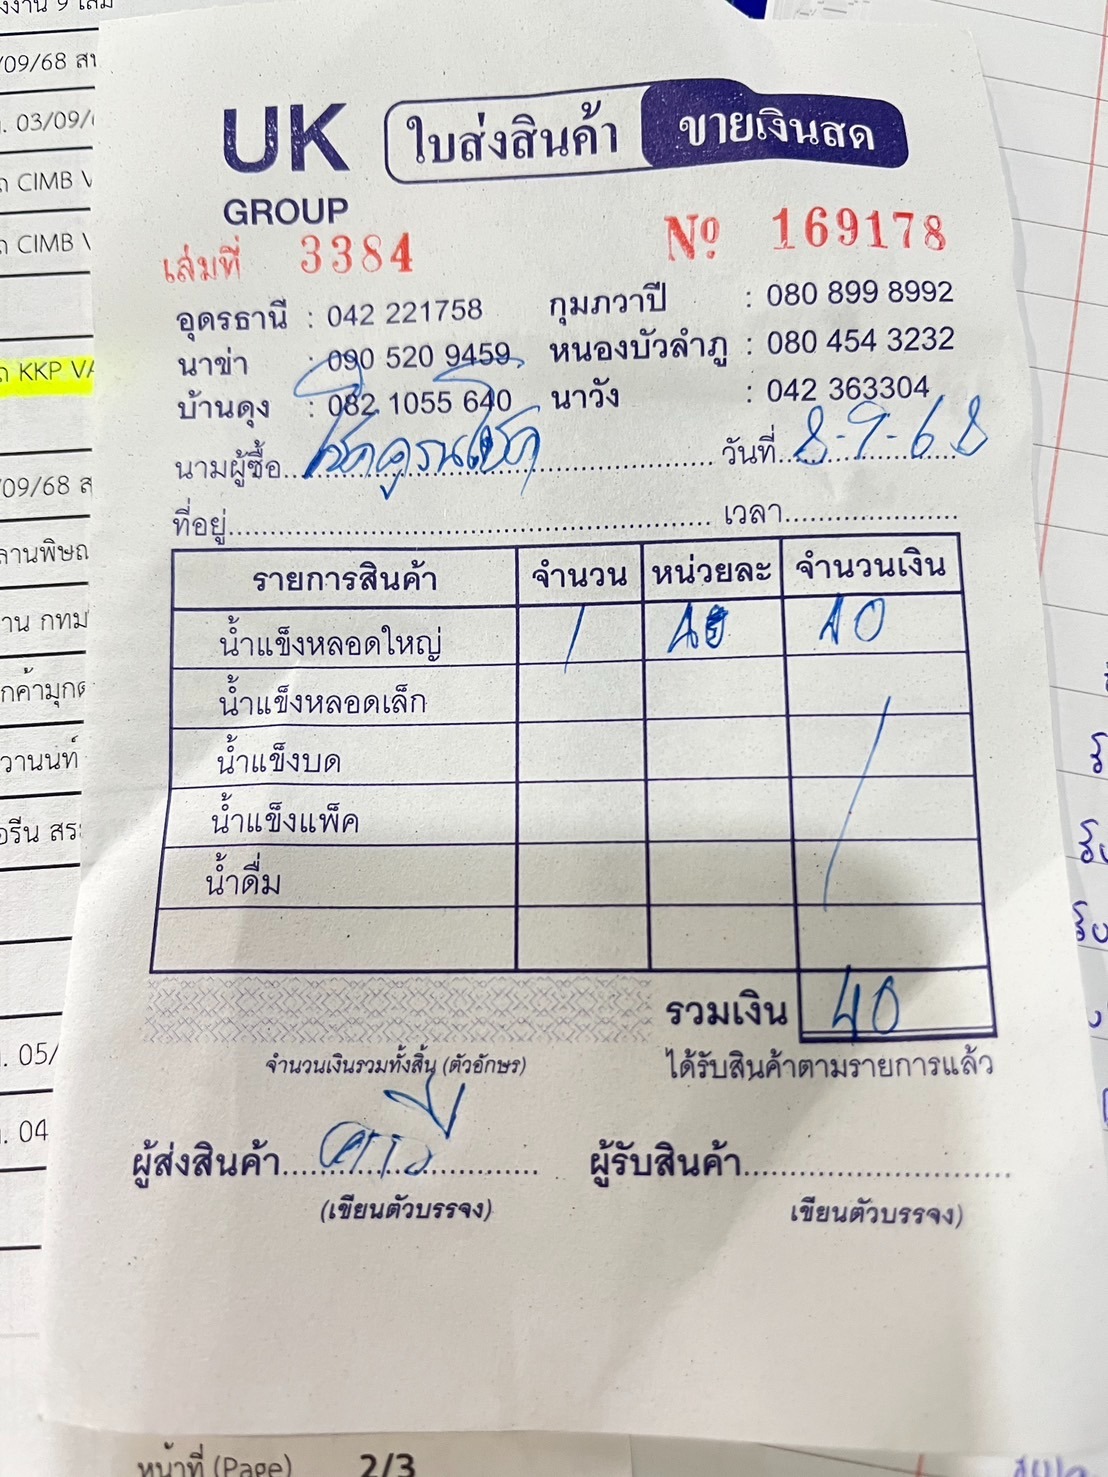 UK ใบส่งสินค้า ขายเงินสด
GROUP
เล่มที่ 3384 Nº 169178
อุดรธานี : 042 221758 กุมภวาปี : 080 899 8992
นาข่า : 090 520 9459 หนองบัวลำภู : 080 454 3232
บ้านดุง : 082 1055 640 นาวัง : 042 363304
นามผู้ซื้อ โชคคูณโชค วันที่ 8-9-68
ที่อยู่ เวลา
รายการสินค้า จำนวน หน่วยละ จำนวนเงิน
น้ำแข็งหลอดใหญ่ 1 40 40
น้ำแข็งหลอดเล็ก
น้ำแข็งบด
น้ำแข็งแพ็ค
น้ำดื่ม
รวมเงิน 40
จำนวนเงินรวมทั้งสิ้น (ตัวอักษร) ได้รับสินค้าตามรายการแล้ว
ผู้ส่งสินค้า ผู้รับสินค้า
(เขียนตัวบรรจง) เขียนตัวบรรจง)
หน้าที่ (Page) 2/3
/09/68
03/09/
CIMB
CIMB
KKP
/09/68
05/
04